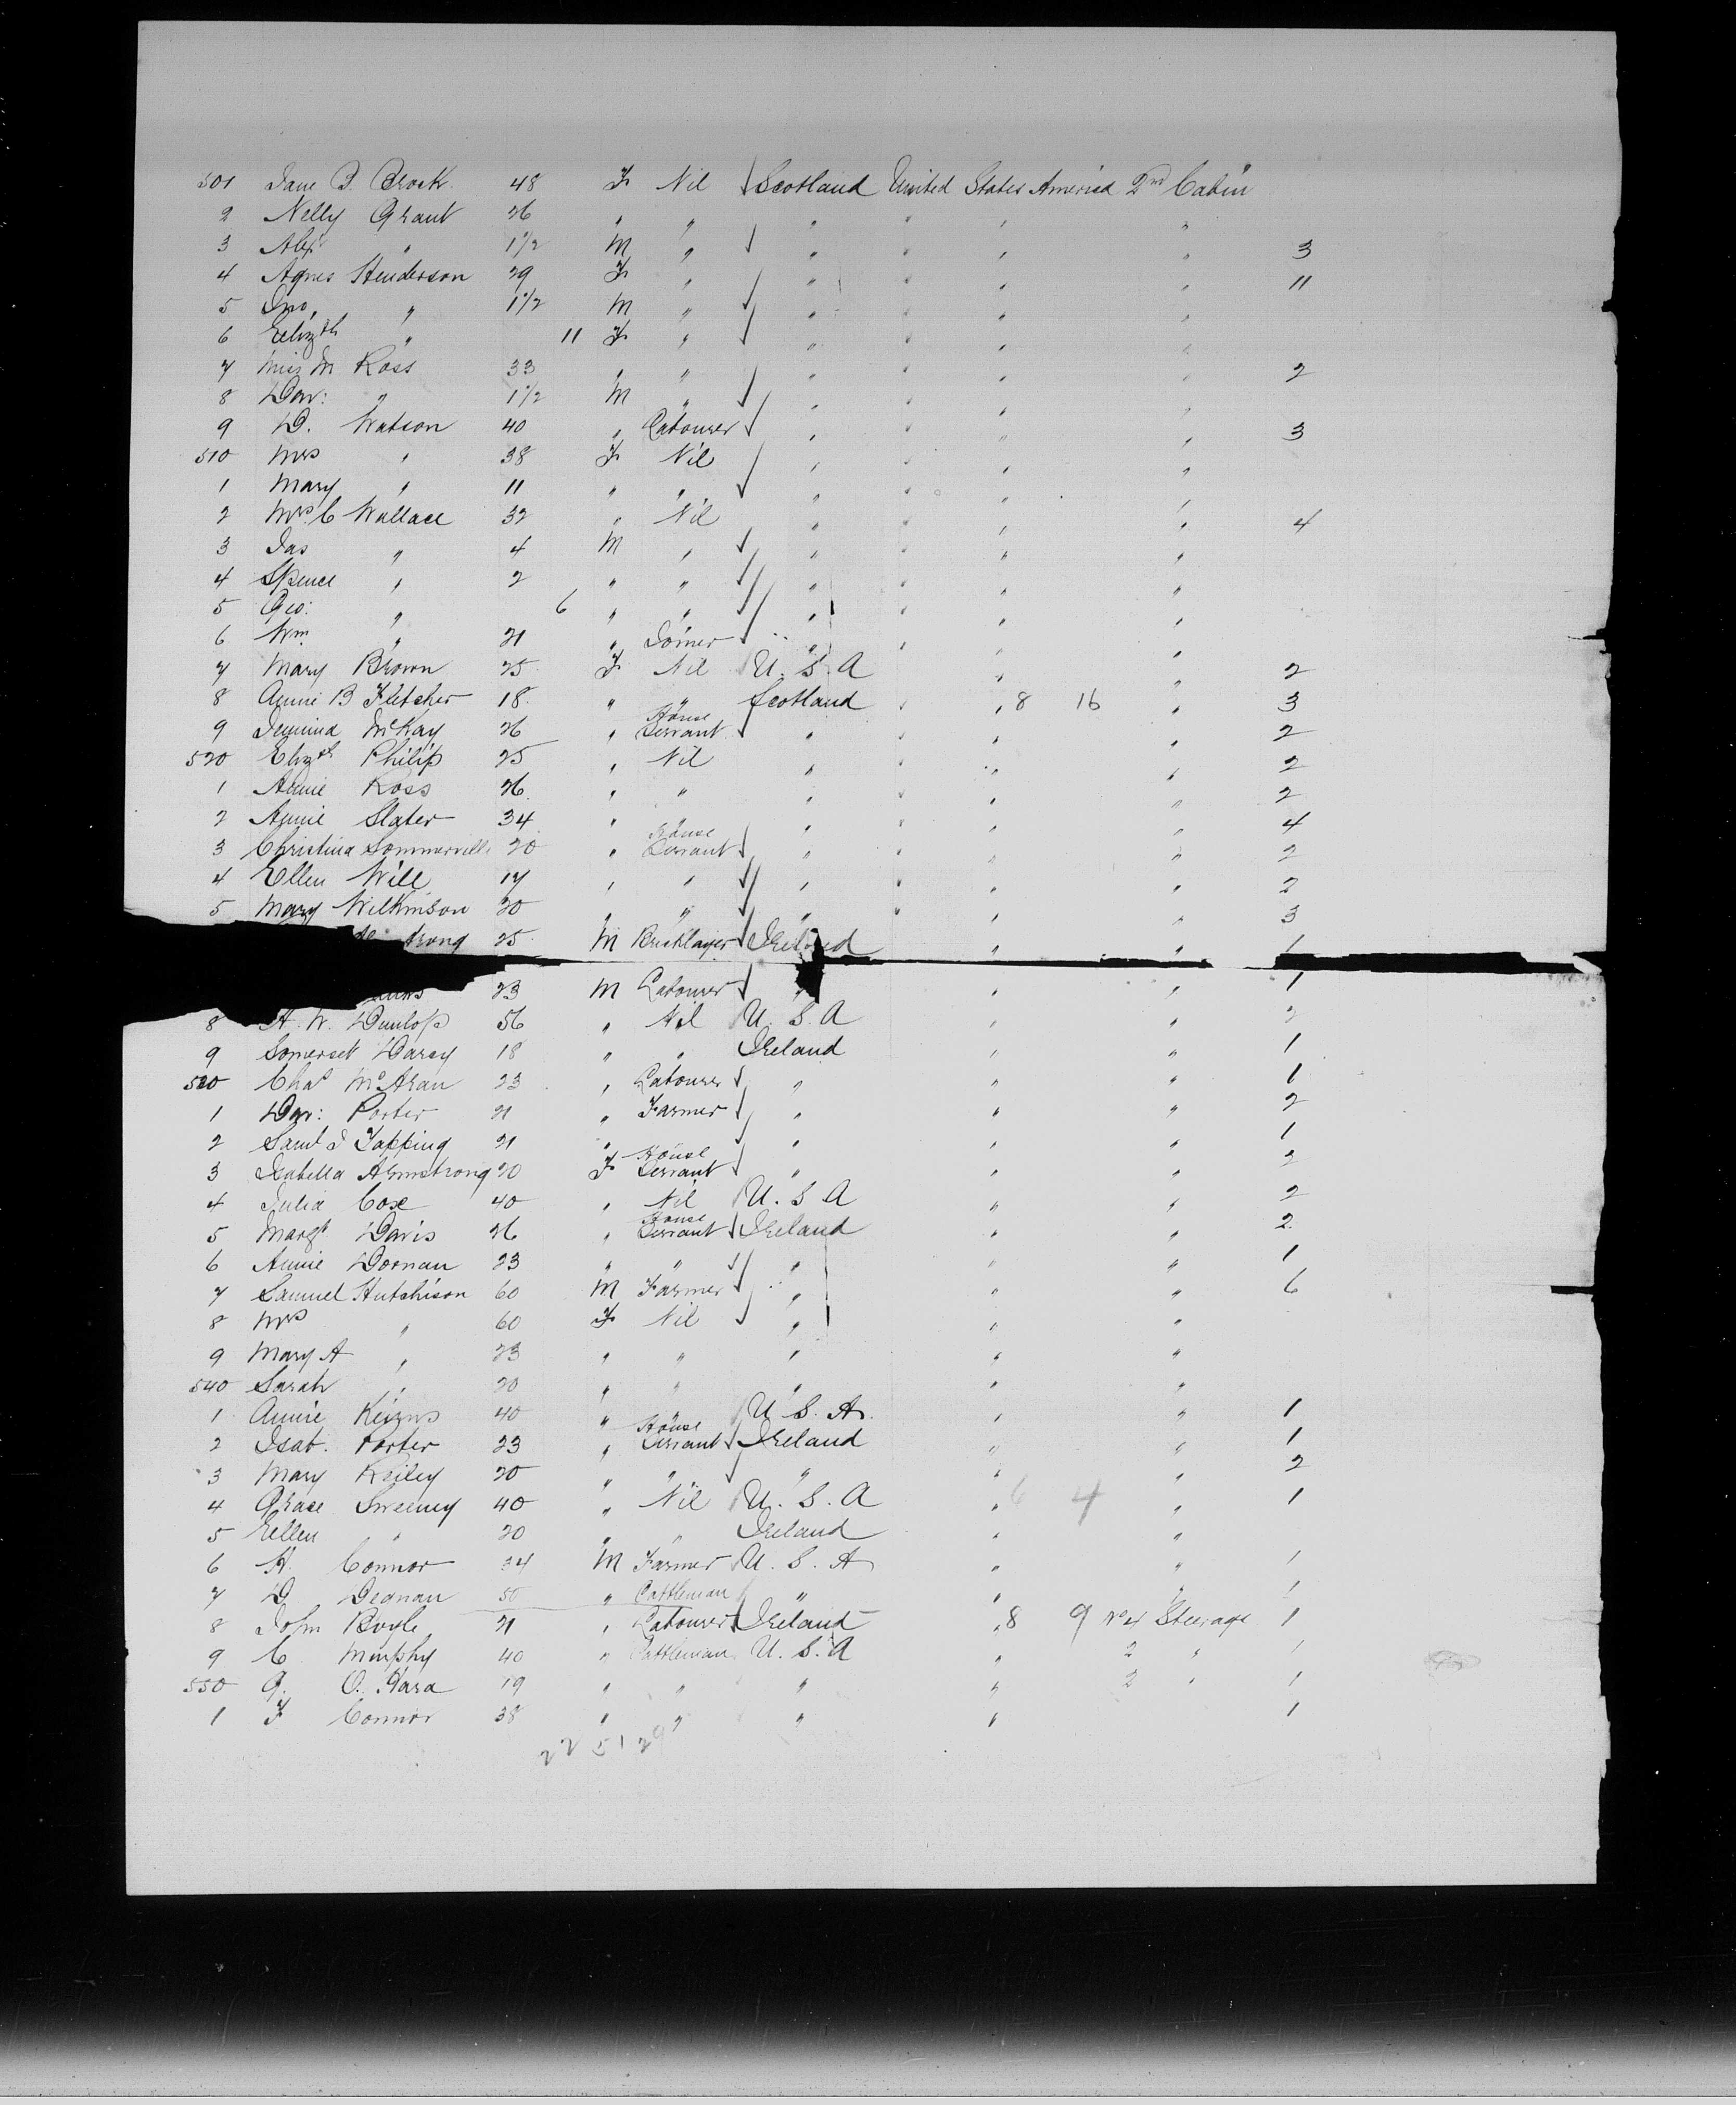 501 Jane B. Brock. 48 F Nil Scotland United States America 2nd Cabin
2 Nelly Grant 26 " " " " " "
3 Alexr " 1 1/2 M " " " " " 3
4 Agnes Henderson 29 F " " " " " 11
5 Jno, " 1 1/2 M " " " " "
6 Elizth " 11 F " " " " "
7 Miss M Ross 33 " " " " " " 2
8 Dav: " 1 1/2 M " " " " "
9 D. Watson 40 " Labourer " " " " 3
510 Mrs " 38 F Nil " " " "
1 Mary " 11 " " " " " "
2 Mrs C Wallace 32 " Nil " " " " 4
3 Jas " 4 M " " " " "
4 Spence " 2 " " " " " "
5 Geo: " 6 " " " " " "
6 Wm " 21 " Joiner " " " "
7 Mary Brown 25 F Nil U. S. A " " 2
8 Annie B Fletcher 18 " " Scotland " " 8 16 " 3
9 Jemima McKay 26 " House Servant " " " " 2
520 Elizth Philip 25 " Nil " " " " 2
1 Annie Ross 26 " " " " " " 2
2 Annie Slater 34 " " " " " " 4
3 Christina Sommerville 20 " House Servant " " " " 2
4 Ellen Will 17 " " " " " " 2
5 Mary Wilkinson 20 " " " " " " 3
trong 25 M Bricklayer Ireland " " 1
23 M Labourer " " " 1
8 A. W. Dunlop 56 " Nil U. S. A " " 2
9 Somerset Darcy 18 " " Ireland " " 1
520 Chas 23 " Labourer " " " 1
1 Dav: Porter 21 " Farmer " " " 2
2 Saml J Topping 21 " " " " " 1
3 Isabella Armstrong 20 F House Servant " " " 2
4 Julia Cose 40 " Nil U. S A " " 2
5 Margt Davis 26 " House Servant Ireland " " 2
6 Annie Dornan 23 " " " " " 1
7 Samuel Hutchison 60 M Farmer " " " 6
8 Mrs " 60 F Nil " " "
9 Mary A " 23 " " " " "
540 Sarah " 20 " " " " "
1 Annie 40 " " U. S. A. " " 1
2 Isab. Porter 23 " House Servant Ireland " " 1
3 Mary Keiley 20 " " " " " 2
4 Grace Sweeney 40 " Nil U. S. A " 6 4 " 1
5 Ellen " 20 " " Ireland " "
6 H. Connor 34 M Farmer U. S. A " " 1
7 D Degnan 50 " Cattleman " " " 1
8 John Boyle 21 " Labourer Ireland " 8 9 No 4 Steerage 1
9 C Murphy 40 " Cattleman U. S. A " 2 " 1
550 G. O. Hara 19 " " " " 2 " 1
1 F Connor 38 " " " " 1
22 51 29